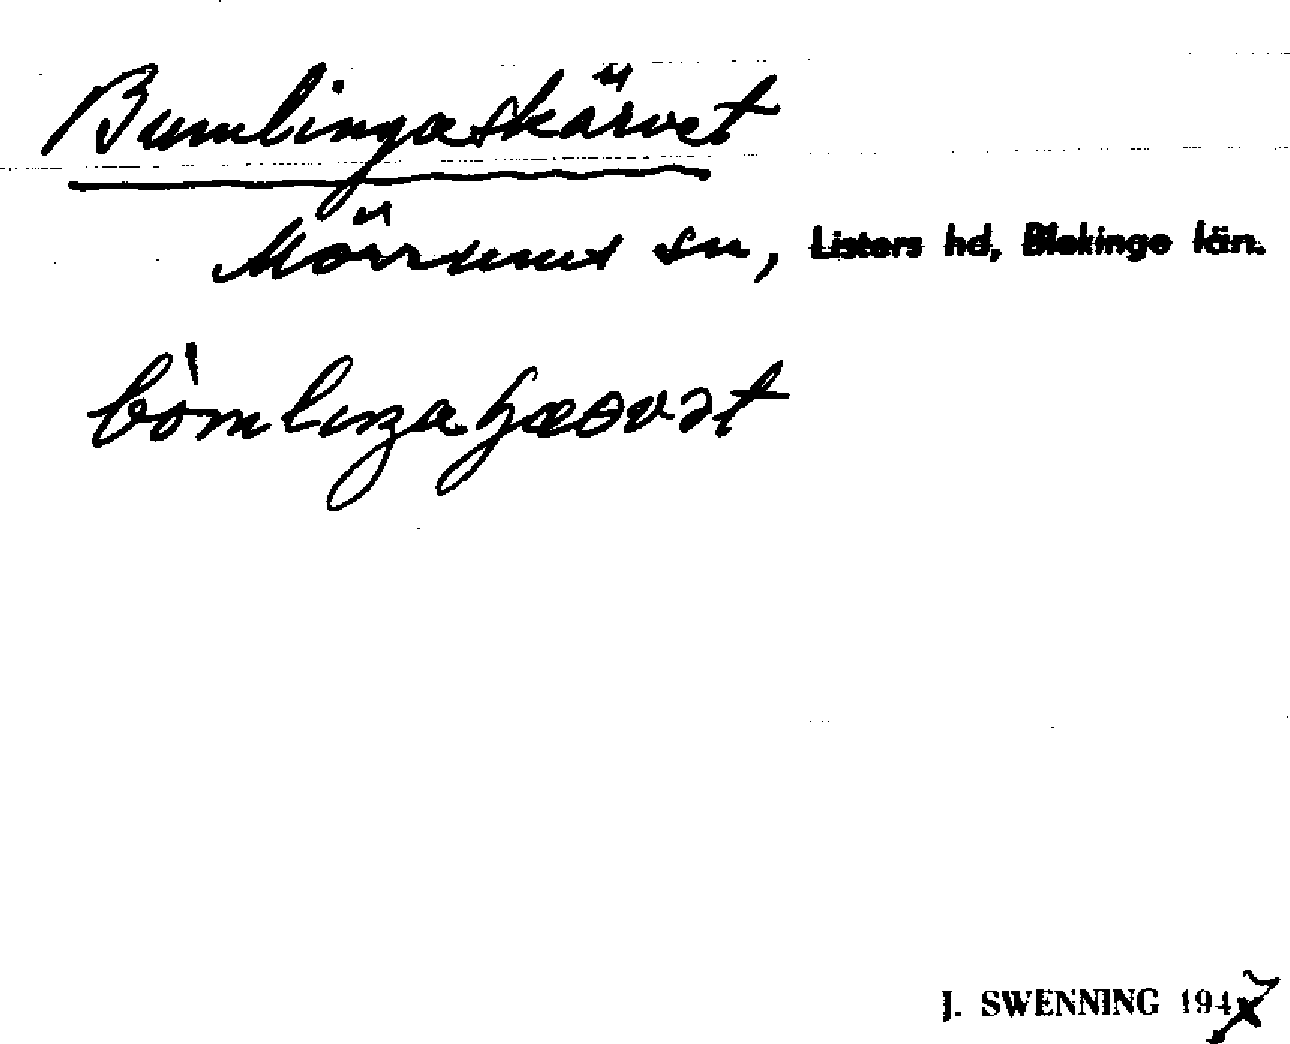 Bumlingaskärvet
Mörrums sn, Listers hd, Blekinge län.
bòmlıŋaʃæɵvət
J. SWENNING 1947